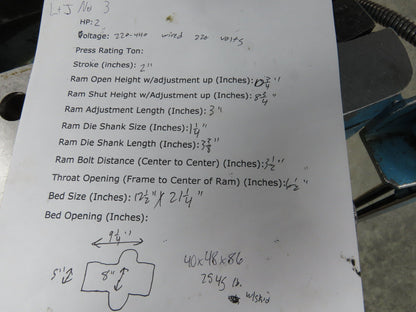 L+J No 3
HP: 2
Voltage: 220-440 wired 220 volts
Press Rating Ton:
Stroke (inches): 2"
Ram Open Height w/adjustment up (Inches): 10 3/4"
Ram Shut Height w/Adjustment up (Inches): 8 3/4"
Ram Adjustment Length (Inches): 3"
Ram Die Shank Size (Inches): 1 1/4"
Ram Die Shank Length (Inches): 2 3/8
Ram Bolt Distance (Center to Center) (Inches): 3 1/2"
Throat Opening (Frame to Center of Ram) (Inches): 6 1/2"
Bed Size (Inches): 12 1/2" X 21 1/4"
Bed Opening (Inches):
9 1/4"
5"
8"
40x48x86
2545 lb.
w/skid